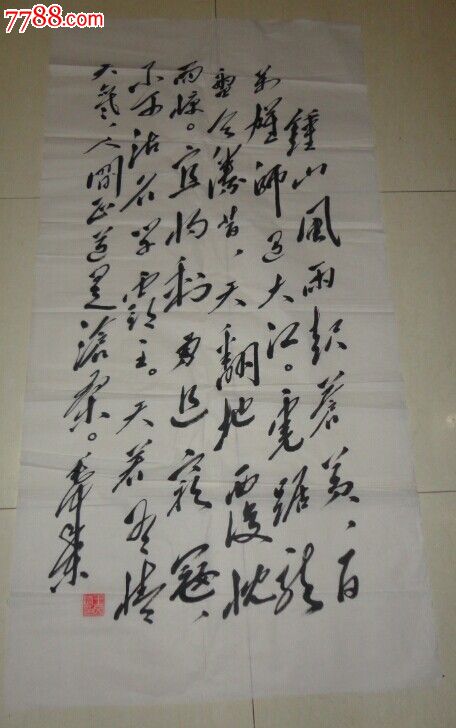 7788.com
中国收藏热线
鍾山風雨起蒼黄、百
萬雄師过大江。虎踞龍
盤今勝昔、天翻地覆慨
而慷。宜将剩勇追窮寇、
不可沽名学霸王。天若有情
天亦老、人間正道是滄桑。毛泽东